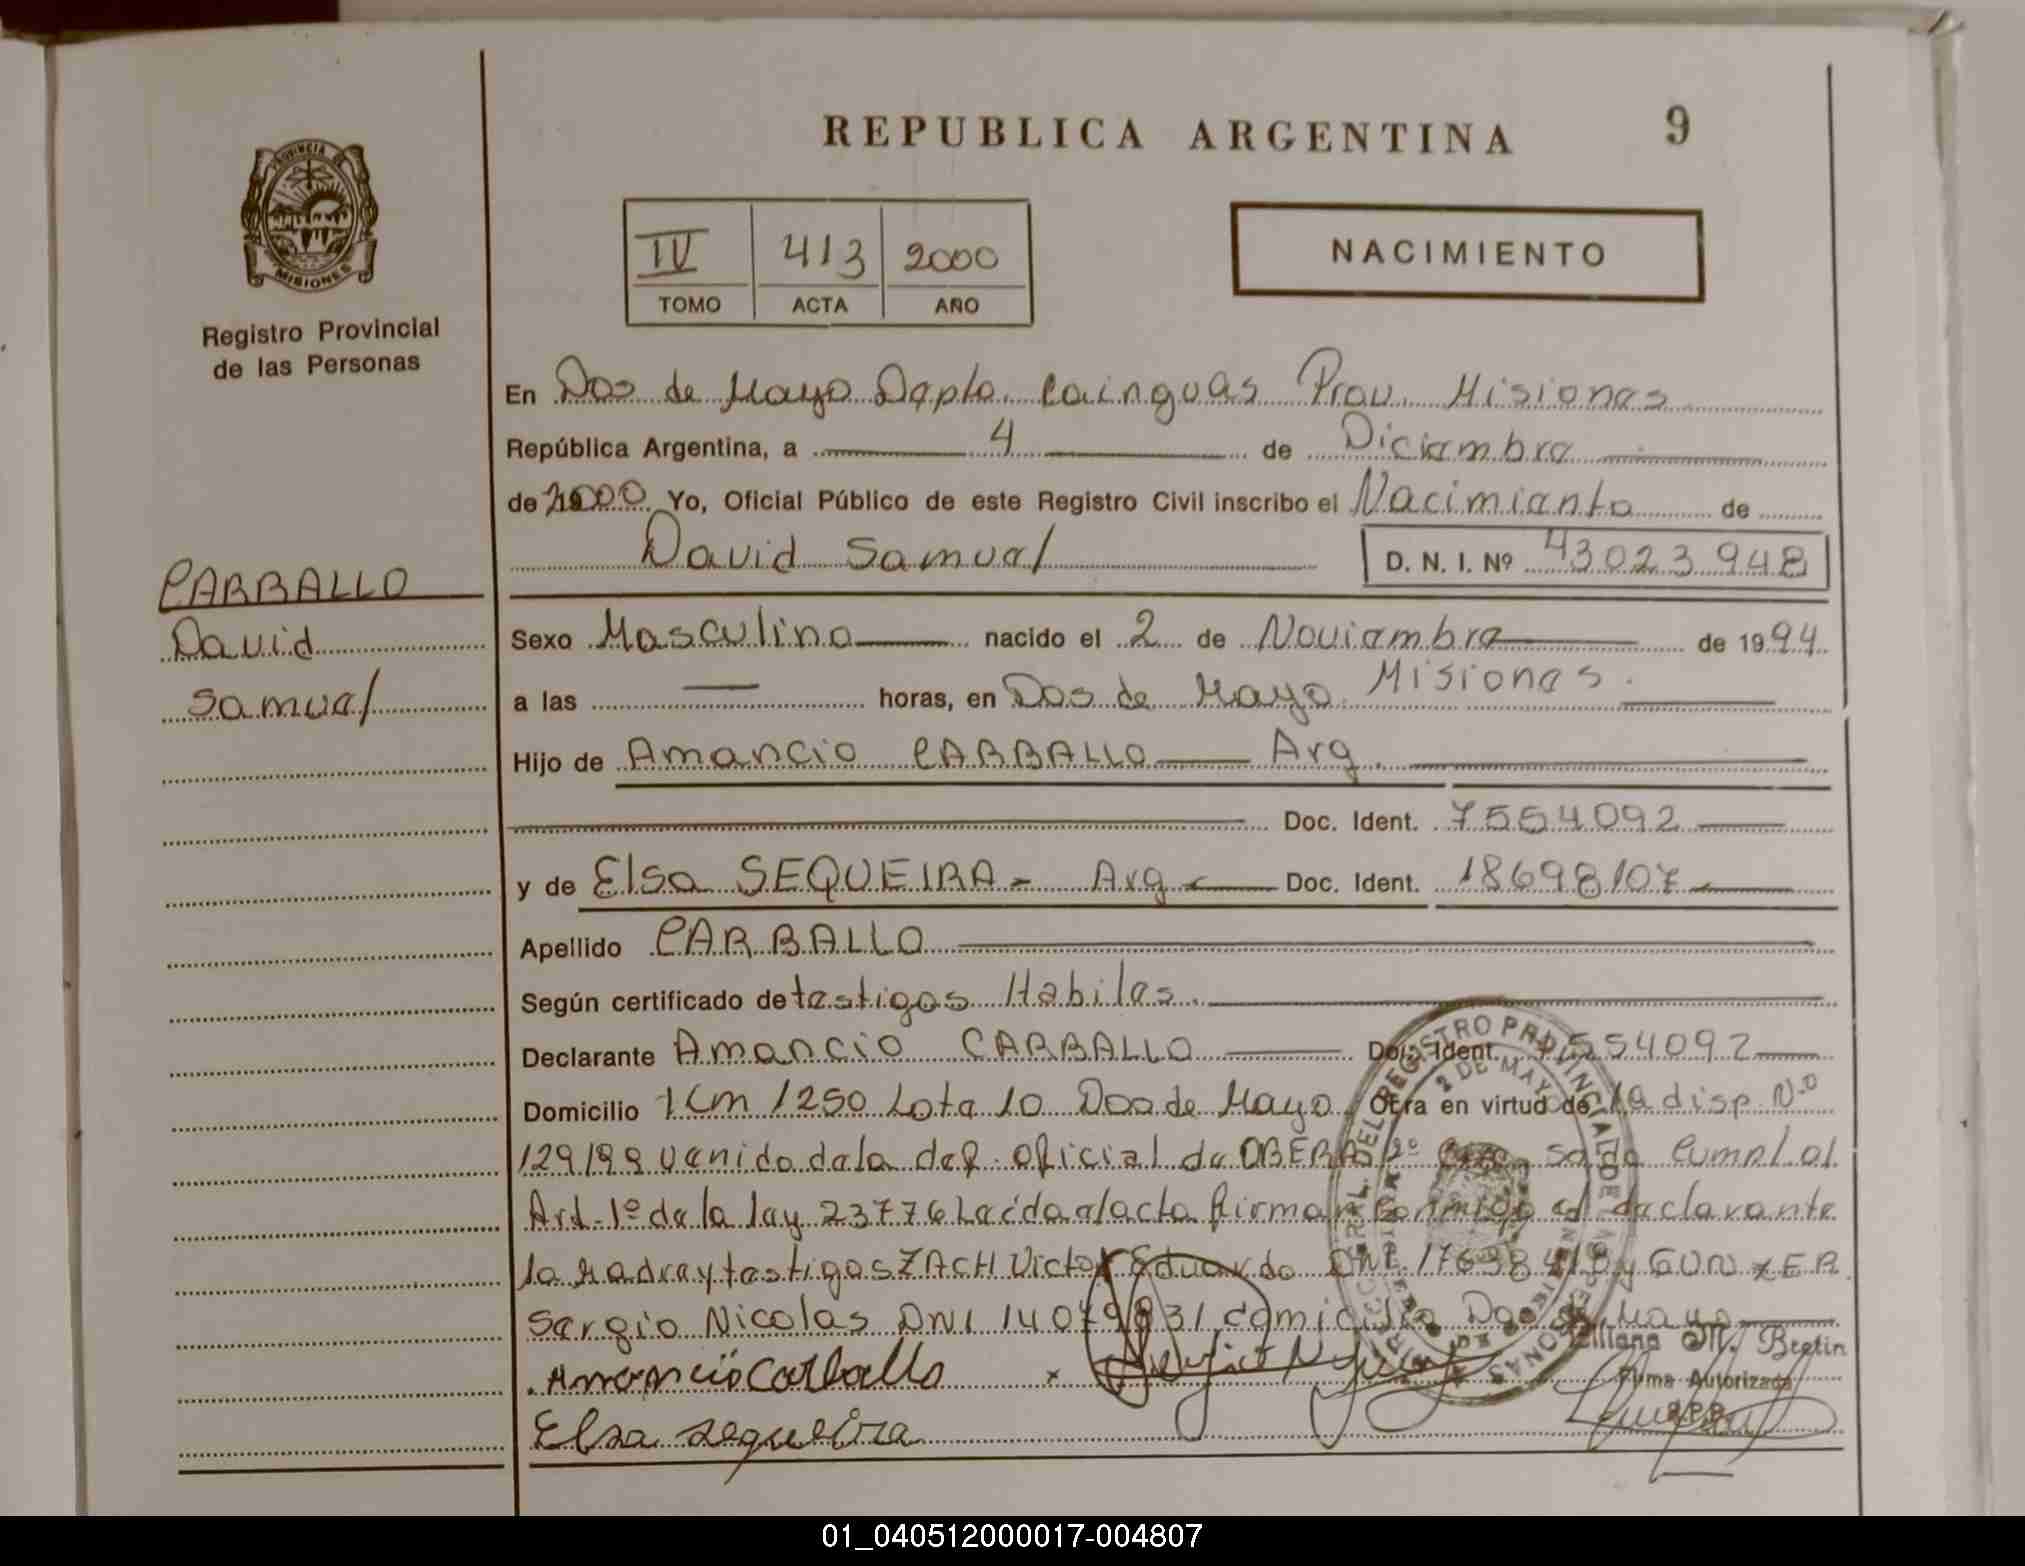 REPUBLICA ARGENTINA 9
PROVINCIA DE MISIONES
Registro Provincial
de las Personas
IV 413 2000
TOMO ACTA AÑO
NACIMIENTO
En Dos de Mayo Depto. Cainguas Prov. Misiones
República Argentina, a 4 de Diciembre
de 2000 Yo, Oficial Público de este Registro Civil inscribo el Nacimiento de
David Samuel D. N. I. Nº 43023948
CARBALLO
David
Samuel
Sexo Masculino nacido el 2 de Noviembre de 1994
a las — horas, en Dos de Mayo. Misiones.
Hijo de Amancio CARBALLO Arg.
Doc. Ident. 7554092
y de Elsa SEQUEIRA - Arg Doc. Ident. 18698107
Apellido CARBALLO
Según certificado de testigos Habiles.
Declarante Amancio CARBALLO Doc. Ident. 7554092
Domicilio Km 1250 Lote 10 Dos de Mayo Otra en virtud de la disp. Nº
129/99 venido de la del. oficial de OBERA Cumpl. al
Art. 1º de la ley 23776 Leida el acta firman conmigo el declarante
la Madre y testigos ZACH Victor Eduardo DNI
Sergio Nicolas DNI domicilio Dos de Mayo
Amancio Carballo
Elsa Sequeira
Liliana M. Bretin
Firma Autorizada
R.P.P.
REGISTRO PROVINCIAL DE LAS PERSONAS
2 DE MAYO
MISIONES
01_040512000017-004807